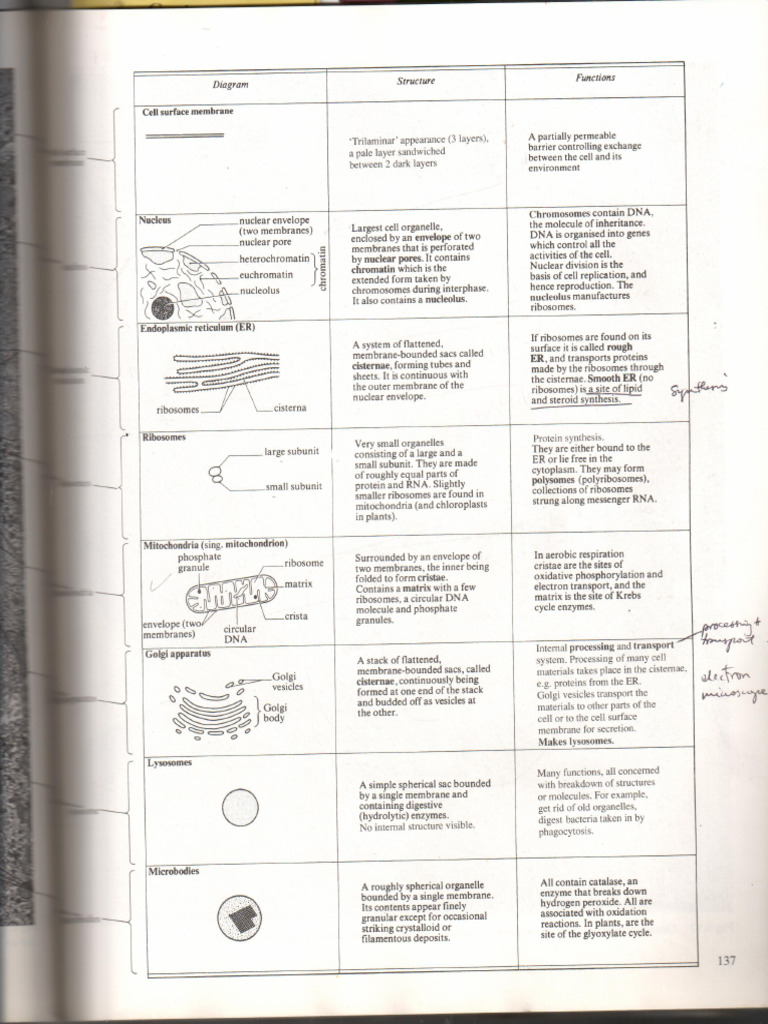 Diagram
Structure
Functions
Cell surface membrane
'Trilaminar' appearance (3 layers),
a pale layer sandwiched
between 2 dark layers
A partially permeable
barrier controlling exchange
between the cell and its
environment
Nucleus
nuclear envelope
(two membranes)
nuclear pore
heterochromatin
euchromatin
chromatin
nucleolus
Largest cell organelle,
enclosed by an envelope of two
membranes that is perforated
by nuclear pores. It contains
chromatin which is the
extended form taken by
chromosomes during interphase.
It also contains a nucleolus.
Chromosomes contain DNA,
the molecule of inheritance.
DNA is organised into genes
which control all the
activities of the cell.
Nuclear division is the
basis of cell replication, and
hence reproduction. The
nucleolus manufactures
ribosomes.
Endoplasmic reticulum (ER)
ribosomes
cisterna
A system of flattened,
membrane-bounded sacs called
cisternae, forming tubes and
sheets. It is continuous with
the outer membrane of the
nuclear envelope.
If ribosomes are found on its
surface it is called rough
ER, and transports proteins
made by the ribosomes through
the cisternae. Smooth ER (no
ribosomes) is a site of lipid
and steroid synthesis.
Synthesis
Ribosomes
large subunit
small subunit
Very small organelles
consisting of a large and a
small subunit. They are made
of roughly equal parts of
protein and RNA. Slightly
smaller ribosomes are found in
mitochondria (and chloroplasts
in plants).
Protein synthesis.
They are either bound to the
ER or lie free in the
cytoplasm. They may form
polysomes (polyribosomes),
collections of ribosomes
strung along messenger RNA.
Mitochondria (sing. mitochondrion)
phosphate
granule
ribosome
matrix
crista
envelope (two
membranes)
circular
DNA
Surrounded by an envelope of
two membranes, the inner being
folded to form cristae.
Contains a matrix with a few
ribosomes, a circular DNA
molecule and phosphate
granules.
In aerobic respiration
cristae are the sites of
oxidative phosphorylation and
electron transport, and the
matrix is the site of Krebs
cycle enzymes.
processing +
transport
Golgi apparatus
Golgi
vesicles
Golgi
body
A stack of flattened,
membrane-bounded sacs, called
cisternae, continuously being
formed at one end of the stack
and budded off as vesicles at
the other.
Internal processing and transport
system. Processing of many cell
materials takes place in the cisternae,
e.g. proteins from the ER.
Golgi vesicles transport the
materials to other parts of the
cell or to the cell surface
membrane for secretion.
Makes lysosomes.
electron
microscope
Lysosomes
A simple spherical sac bounded
by a single membrane and
containing digestive
(hydrolytic) enzymes.
No internal structure visible.
Many functions, all concerned
with breakdown of structures
or molecules. For example,
get rid of old organelles,
digest bacteria taken in by
phagocytosis.
Microbodies
A roughly spherical organelle
bounded by a single membrane.
Its contents appear finely
granular except for occasional
striking crystalloid or
filamentous deposits.
All contain catalase, an
enzyme that breaks down
hydrogen peroxide. All are
associated with oxidation
reactions. In plants, are the
site of the glyoxylate cycle.
137